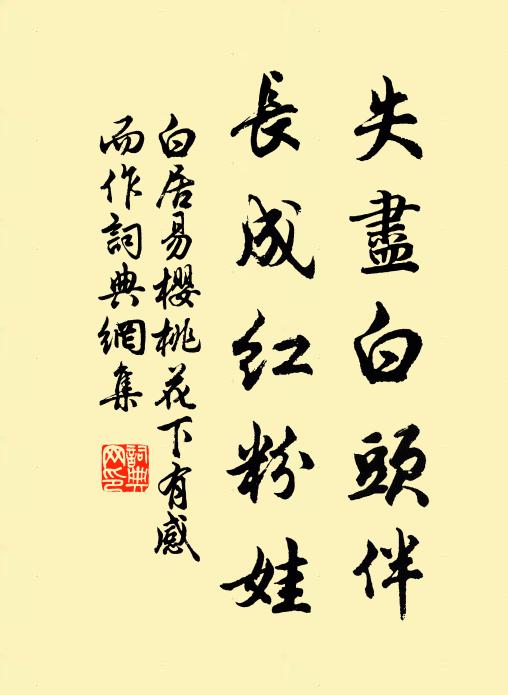 失盡白頭伴
長成紅粉娃
白居易櫻桃花下有感
而作詞典網集
詞典
网印